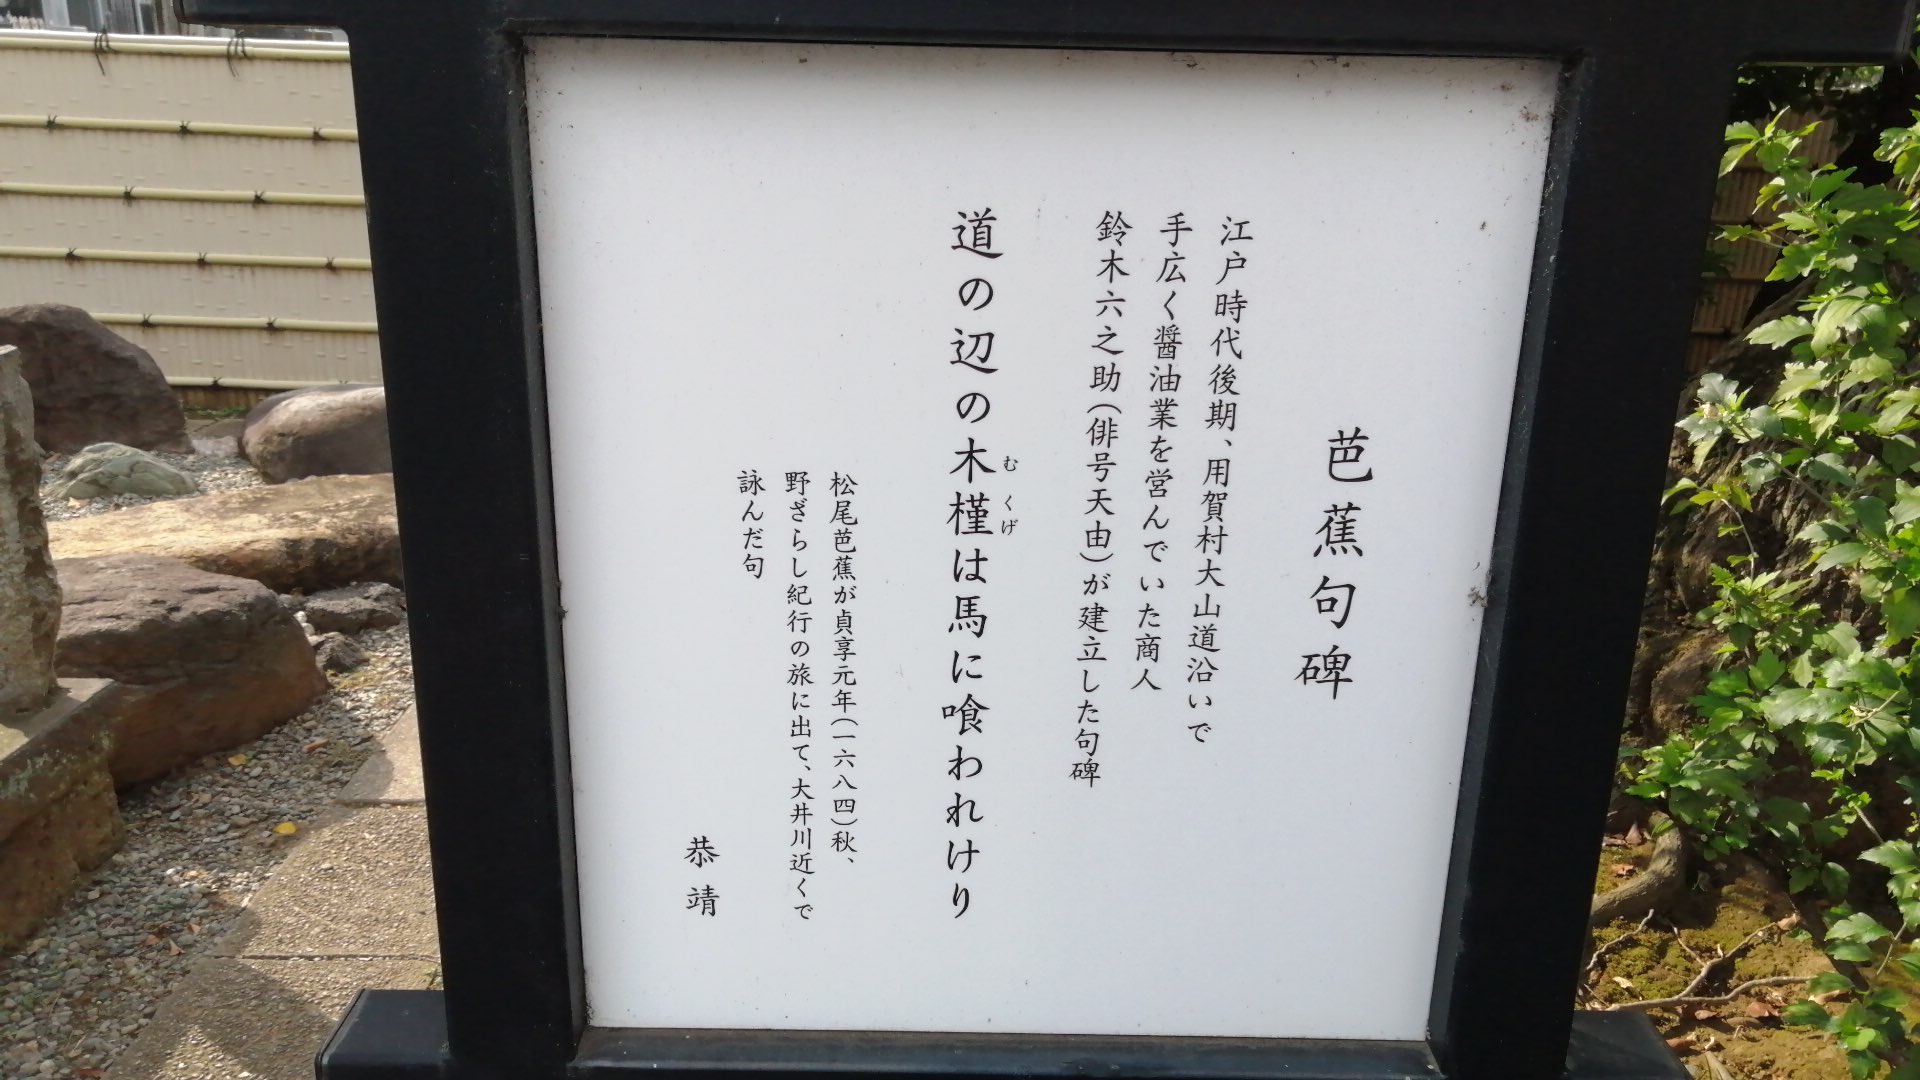 芭蕉句碑
江戸時代後期、用賀村大山道沿いで
手広く醤油業を営んでいた商人
鈴木六之助（俳号天由）が建立した句碑
道の辺の木槿は馬に喰われけり
むくげ
松尾芭蕉が貞享元年（一六八四）秋、
野ざらし紀行の旅に出て、大井川近くで
詠んだ句
恭靖